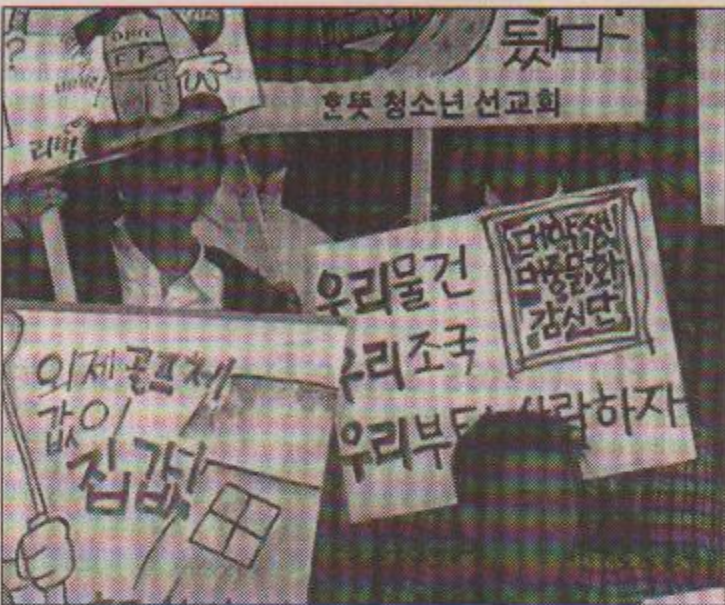 됐다
한뜻 청소년 선교회
리백
우리물건
우리조국
우리부터 사랑하자
대학생
대중문화
감시단
외제골프채
값이
집값